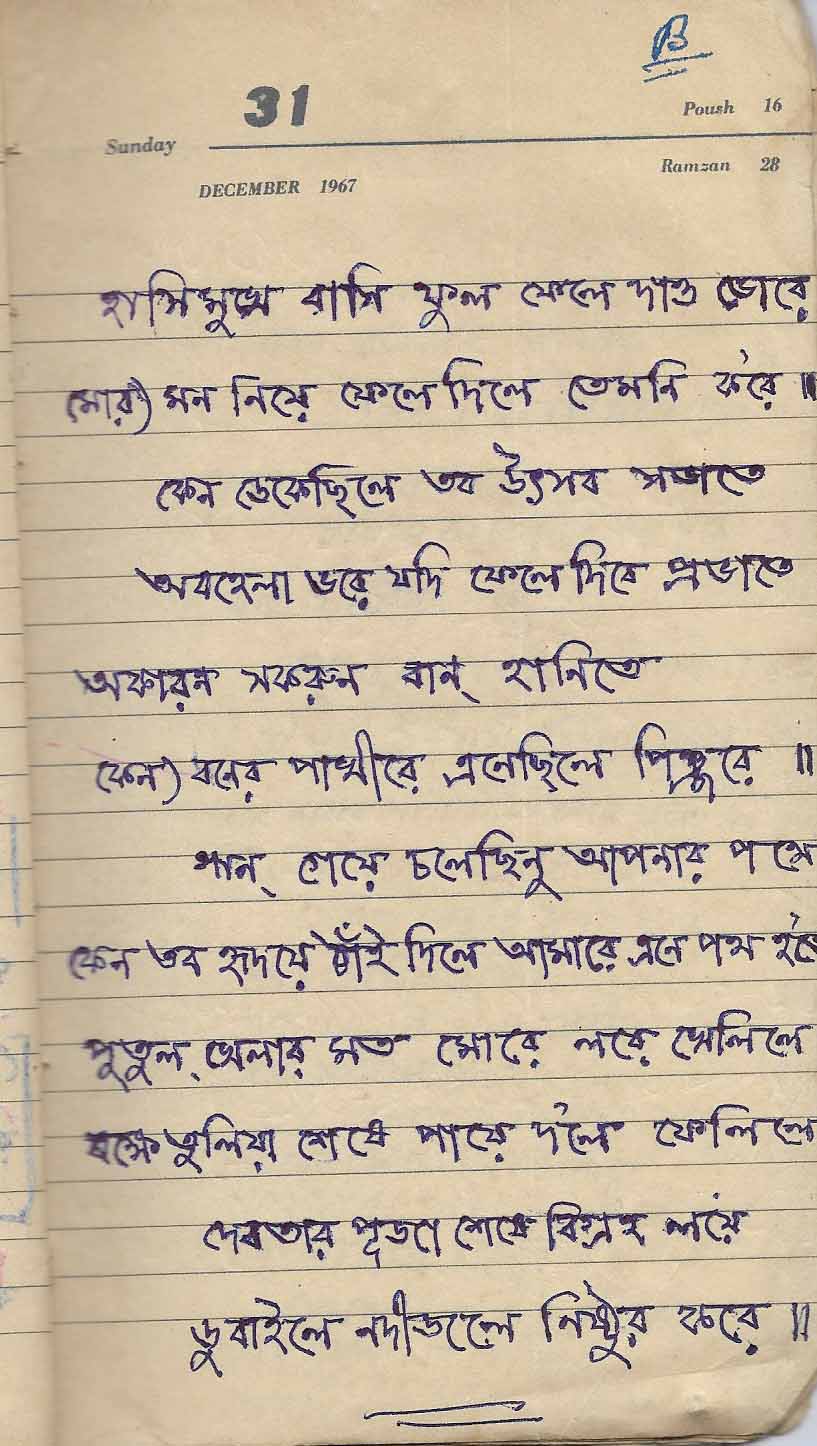 B
31
Poush 16
Sunday
Ramzan 28
DECEMBER 1967
হাসিমুখে বাসি ফুল ফেলে দাও ভোরে
মোর) মন নিয়ে ফেলে দিলে তেমনি ক'রে ॥
কেন ডেকেছিলে তব উৎসব সভাতে
অবহেলা ভরে যদি ফেলে দিবে প্রভাতে
অকারন সকরুন বান্ হানিতে
কেন) বনের পাখীরে এনেছিলে পিঞ্জরে ॥
গান্ গেয়ে চলেছিনু আপনার পথে
কেন তব হৃদয়ে ঠাঁই দিলে আমারে এনে পথ হ'তে
পুতুল্ খেলার্ মত মোরে লয়ে খেলিলে
বক্ষে তুলিয়া শেষে পায়ে দ'লে ফেলিলে
দেবতার পূজা শেষে বিগ্রহ ল'য়ে
ডুবাইলে নদীজলে নিষ্ঠুর করে ॥